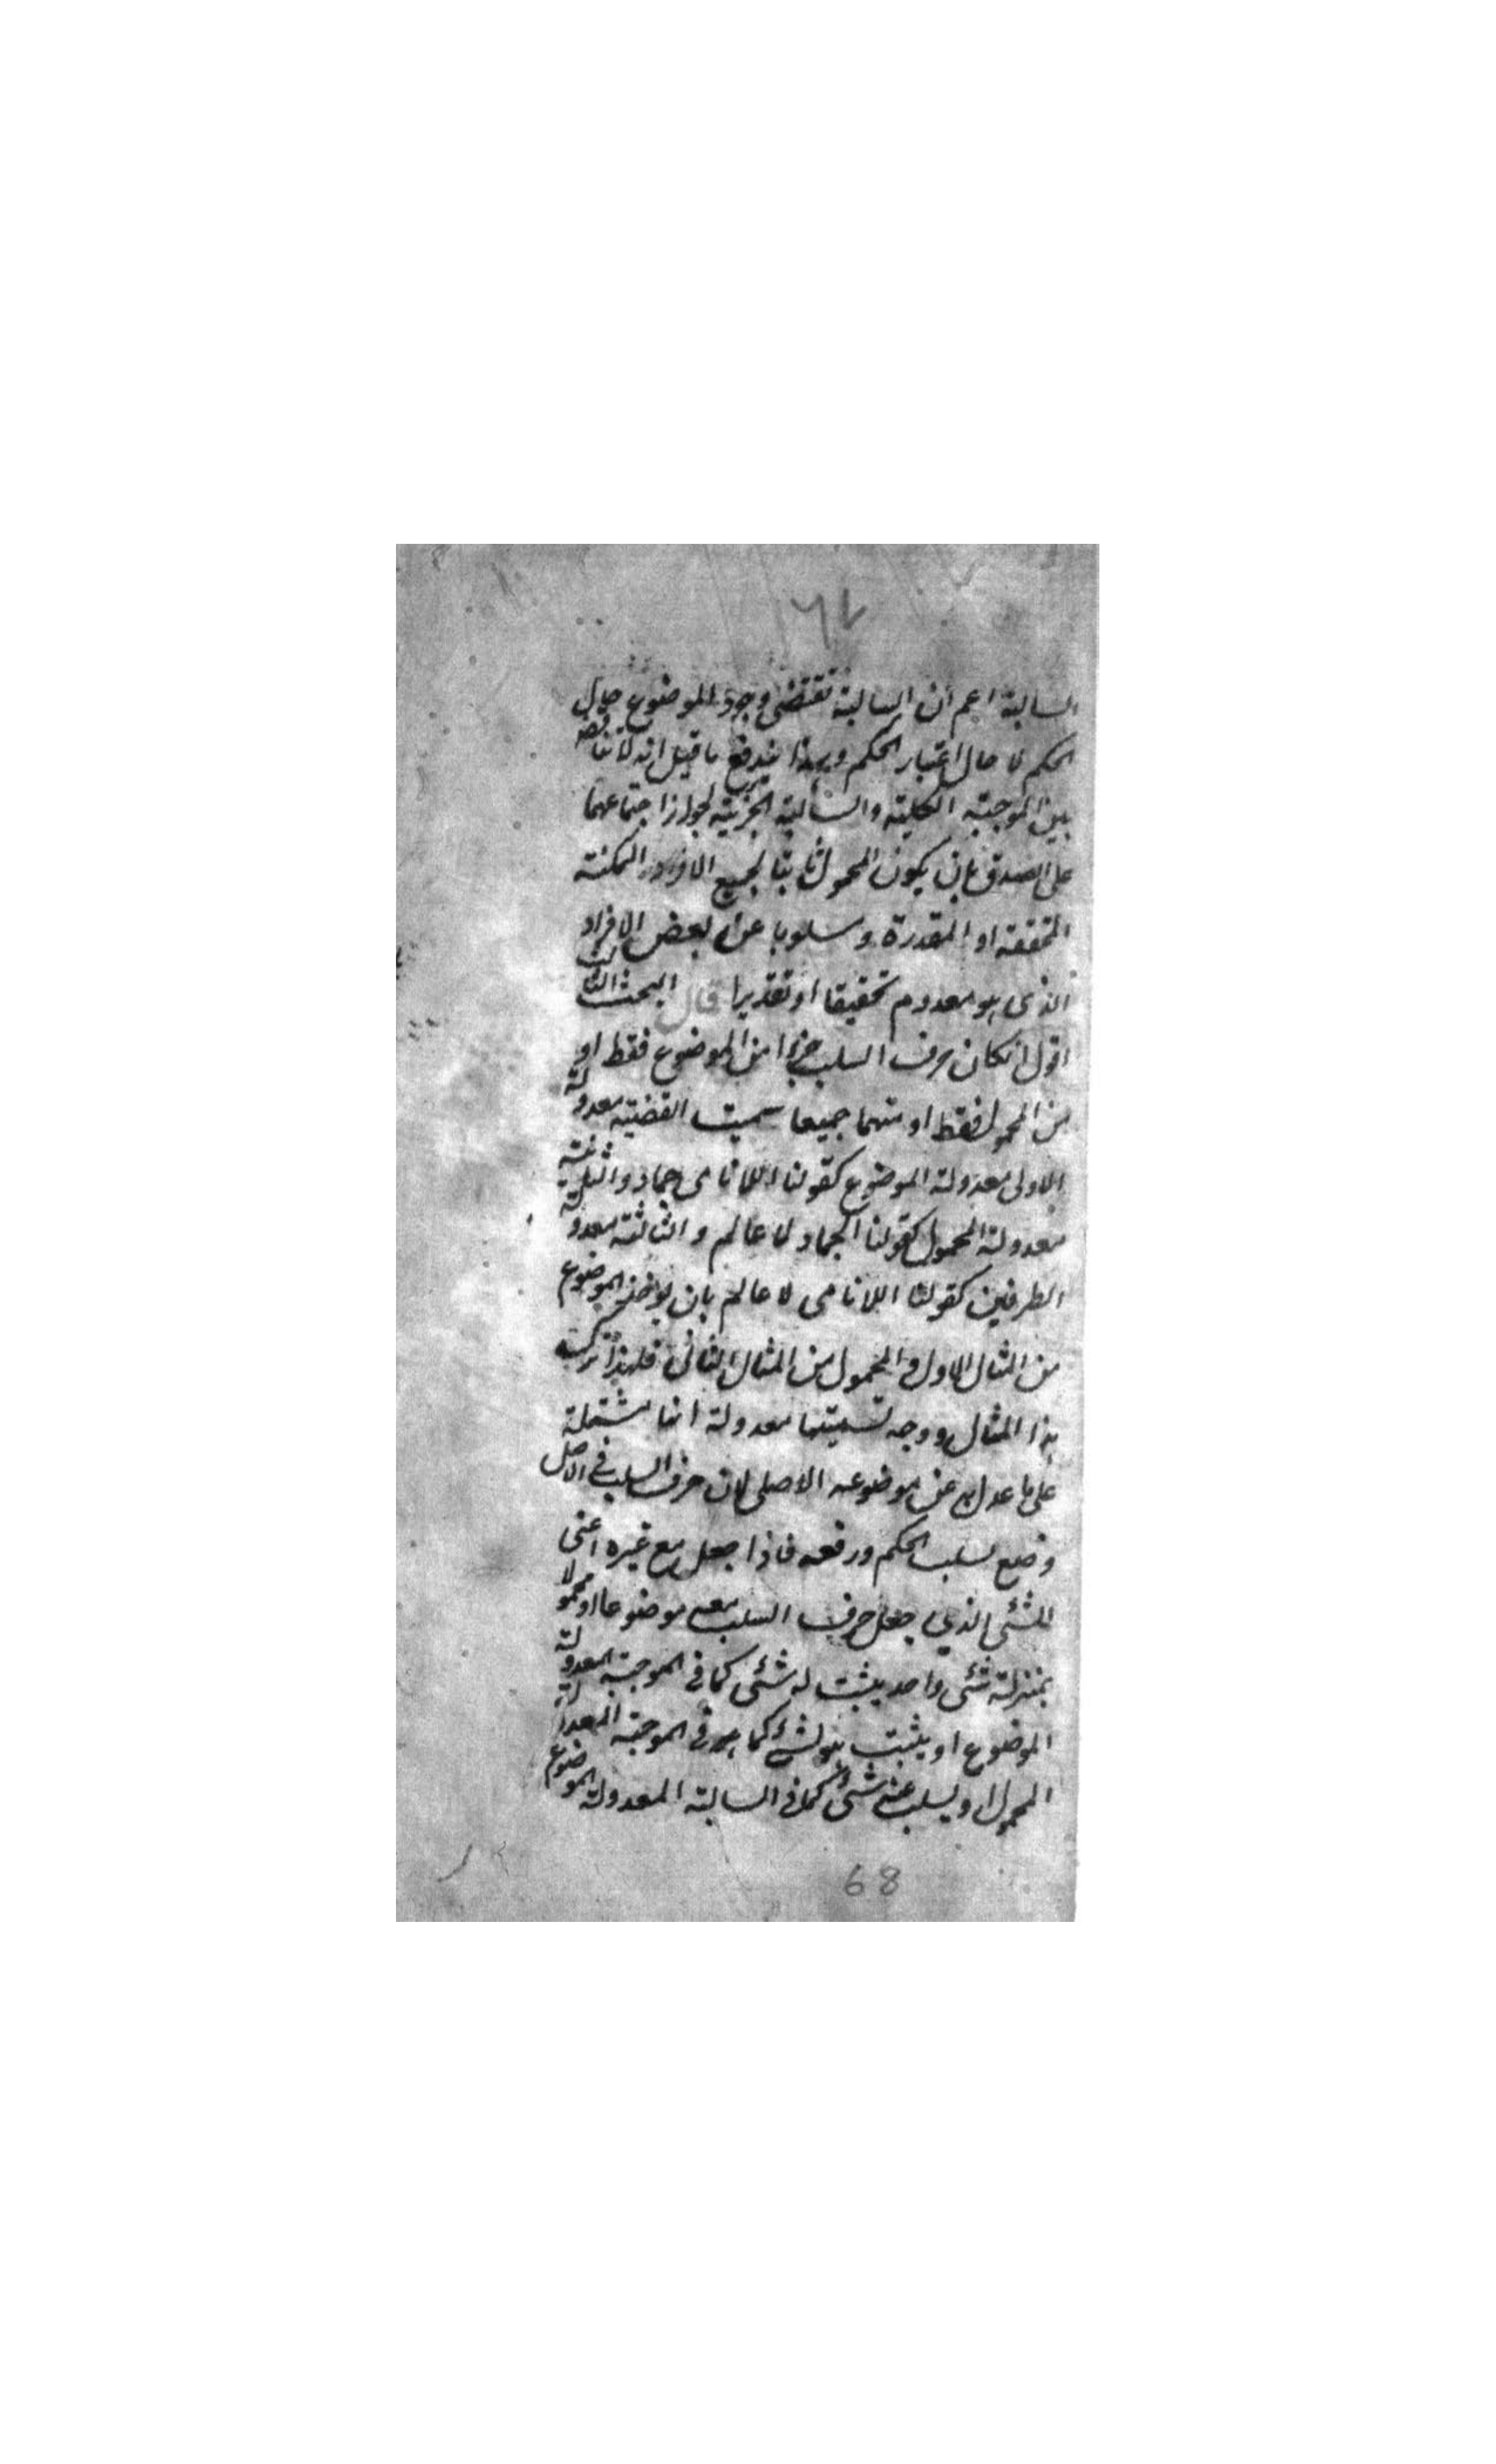 ٦٧
السالبة اعم ان السالبة تقتضى وجود الموضوع حال
الحكم لا حال اعتبار الحكم وبهذا يندفع ما قيل انه لا تناقض
بين الموجبة الكلية والسالبة الجزئية لجواز اجتماعهما
على الصدق بان يكون المحمول ثابتا لجميع الافراد الممكنة
المحققة او المقدرة ومسلوبا عن بعض الافراد
الذى هو معدوم تحقيقا او تقديرا قال البحث الثالث
اقول ان كان حرف السلب جزءا من الموضوع فقط او
من المحمول فقط او منهما جميعا سميت القضية معدولة
الاولى معدولة الموضوع كقولنا اللانامى جماد والثانية
معدولة المحمول كقولنا الجماد لا عالم والثالثة معدولة
الطرفين كقولنا اللانامى لا عالم بان يؤخذ الموضوع
من المثال الاول والمحمول من المثال الثانى فلهذا تركت
هذا المثال ووجه تسميتها معدولة انها مشتملة
على ما عدل به عن موضوعه الاصلى لان حرف السلب فى الاصل
وضع لسلب الحكم ورفعه فاذا جعل مع غيره اعنى
الشئ الذى جعل حرف السلب معه موضوعا او محمولا
بمنزلة شئ واحد يثبت له شئ كما فى الموجبة المعدولة
الموضوع او يثبت هو لشئ كما هو فى الموجبة المعدولة
المحمول او يسلب عنه شئ كما فى السالبة المعدولة الموضوع
68